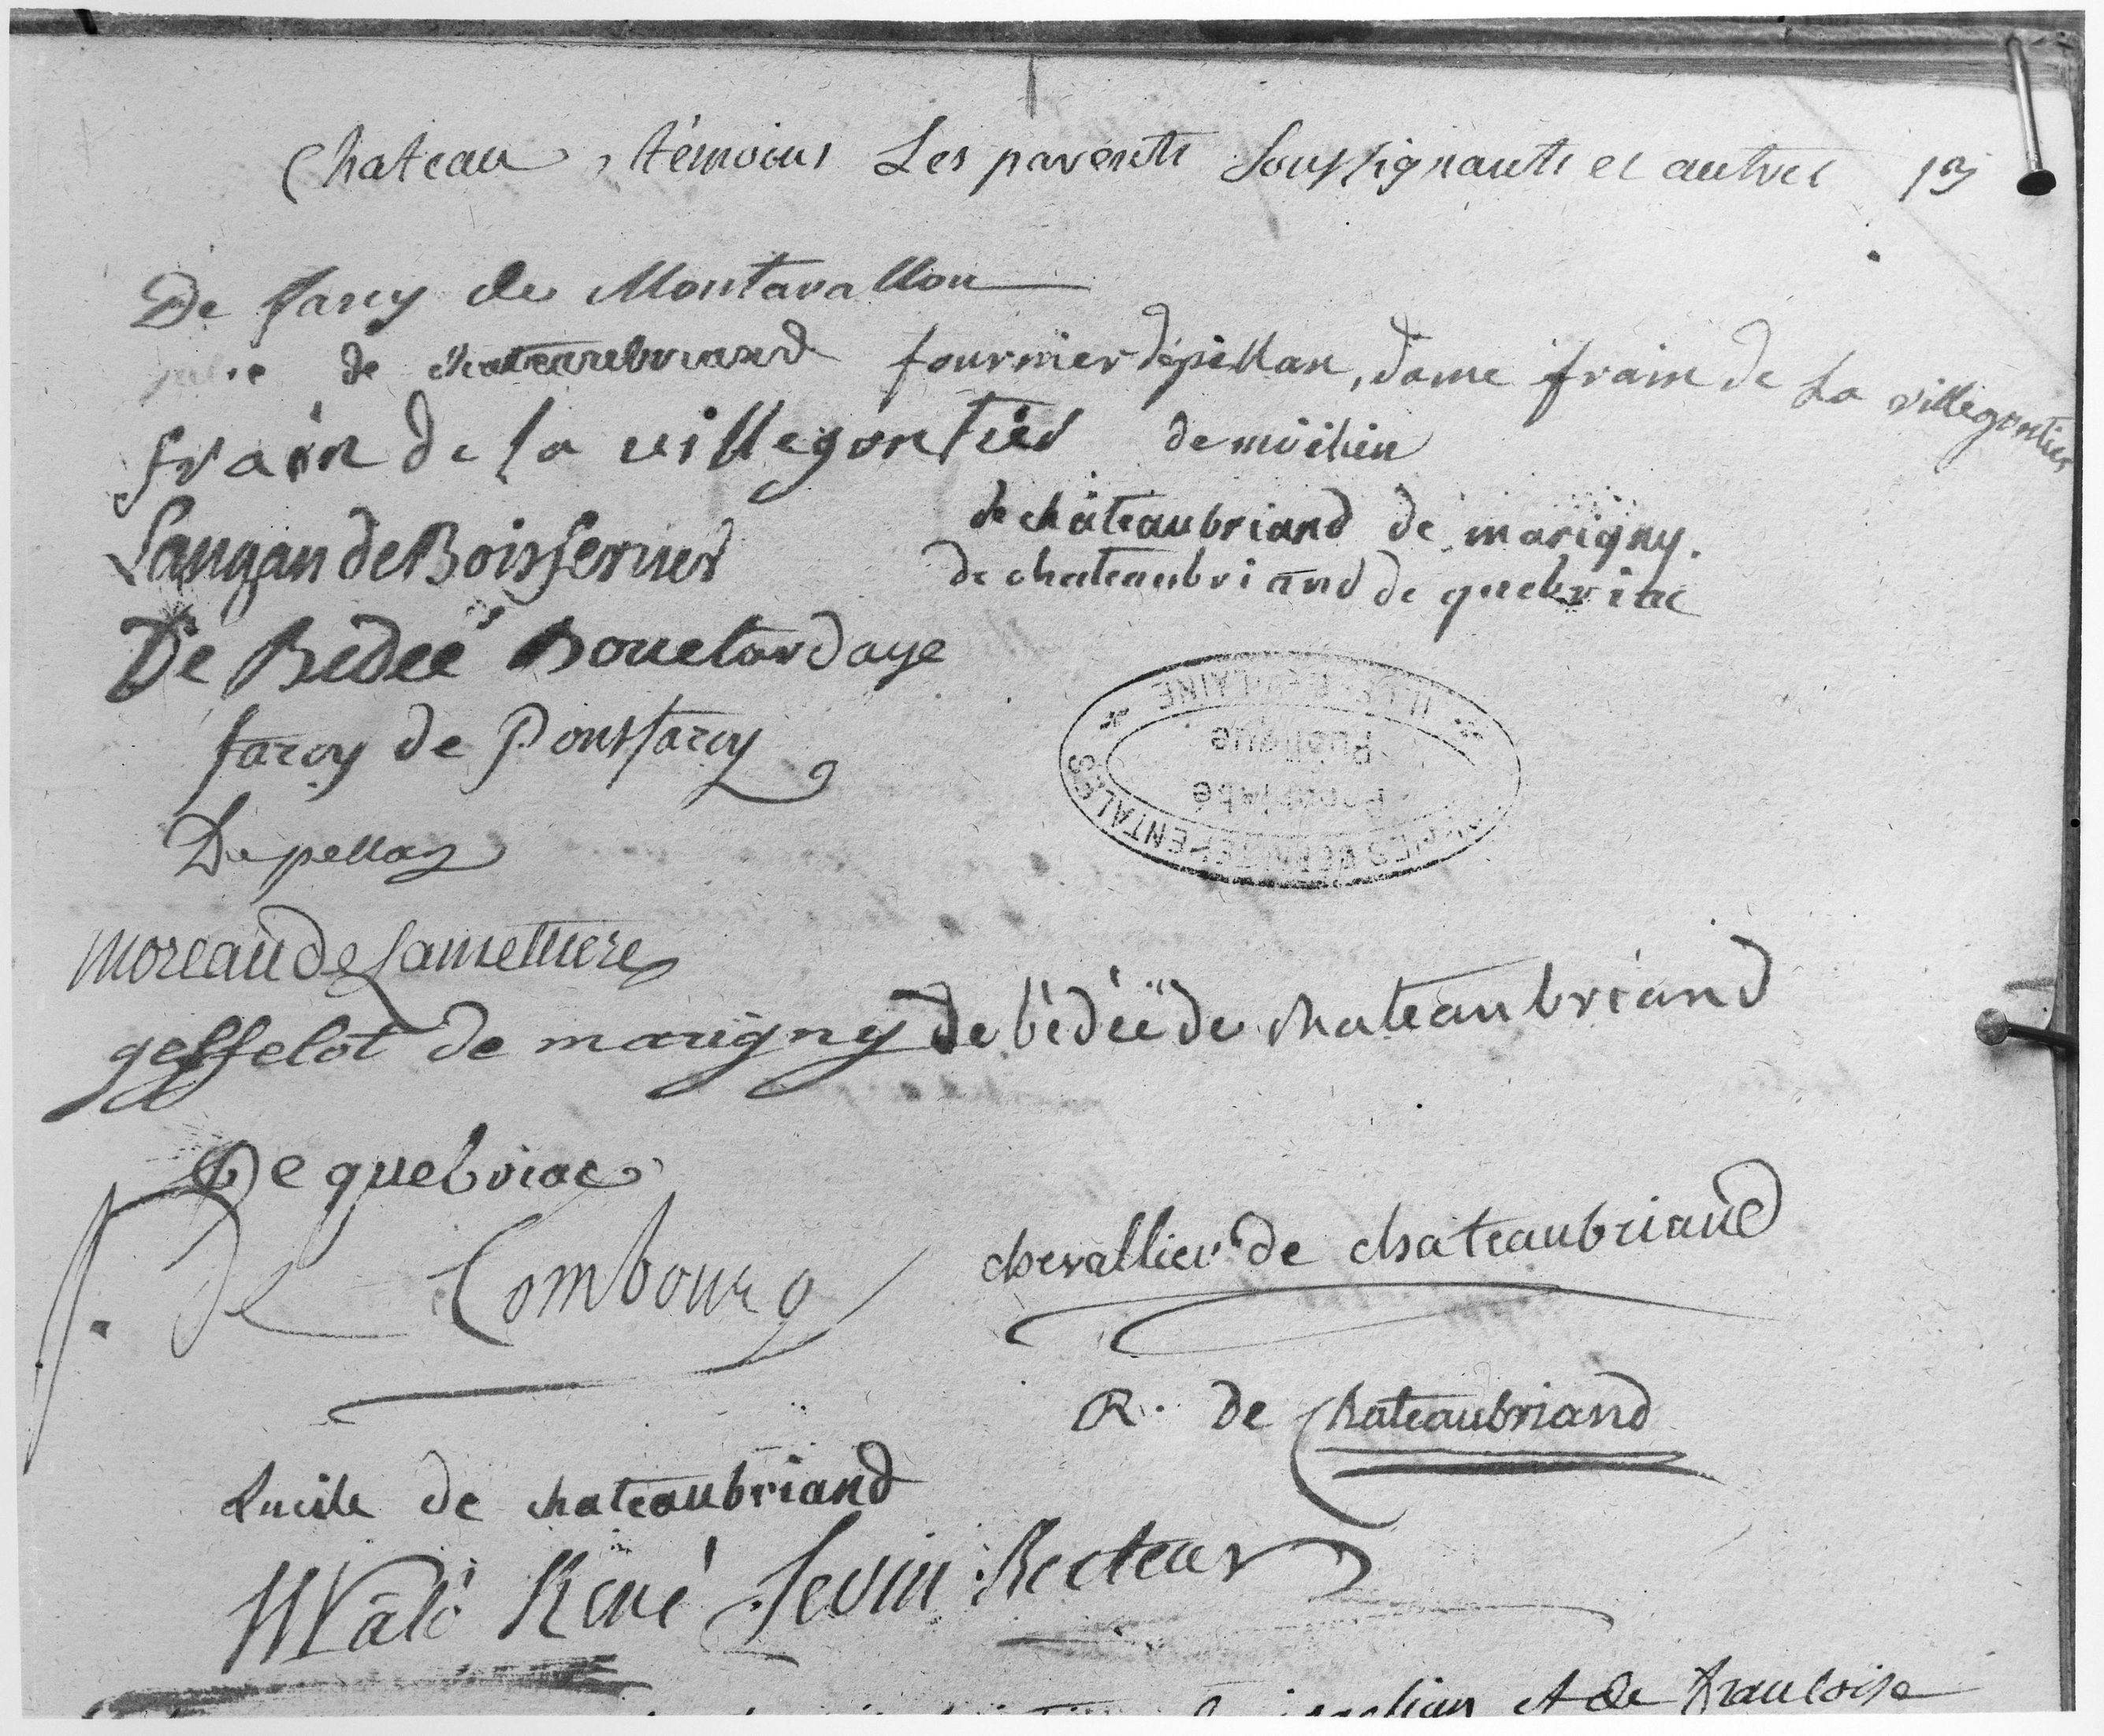 Chateau, témoins Les parents Soussignants et autres
De farcy de Montavallon
julie de chateaubriand fournier dépellan, dame frain de La villegontier
frain de la villegontier de möilien
Langan de Boisfevrier de châteaubriand de marigny.
de chateaubriand de quebriac
De Bédeë Bouetardaye
farcy de Pontfarcy
Depellan
moreau de Lamettrie
gesffelot de marigny de bédeë de chateaubriand
De quebriac
J. De Combourg chevallier de chateaubriand
R. de Chateaubriand
Lucile de chateaubriand
Malo René Sevin Recteur
et de françoise
ARCHIVES DÉPARTEMENTALES
ILLE-ET-VILAINE
Propriété
Publique